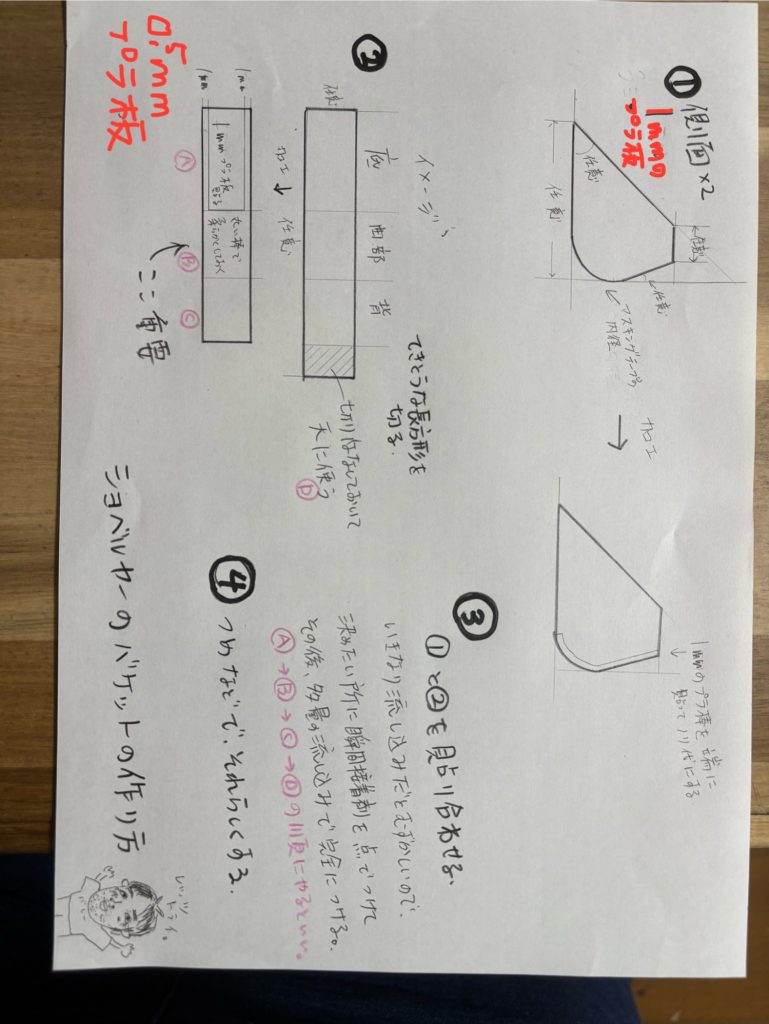 ① 側面×2
1mmの
プラ板
任意
任意
任意
任意
マスキングテープの
内径
加工
1mmのプラ棒を端に
貼ってノリ代にする
②
イメージ
底 曲部 背
任意
加工
任意
てきとうな長方形を
切る。
切りはなしておいて
天に使う
D
1mm
1mm
1mmプラ板
貼る
丸い棒で
柔らかくしておく
A B C
ここ重要
0.5mm
プラ板
③
①と②を貼り合わせる、
いきなり流し込みだとむずかしいので、
決めたい所に瞬間接着剤を点でつけて
その後、多量の流し込みで完全につける。
A→B→C→Dの順にやるといい。
④
つめなどで、それらしくする。
ショベルカーのバケットの作り方
レッツ
トライ。